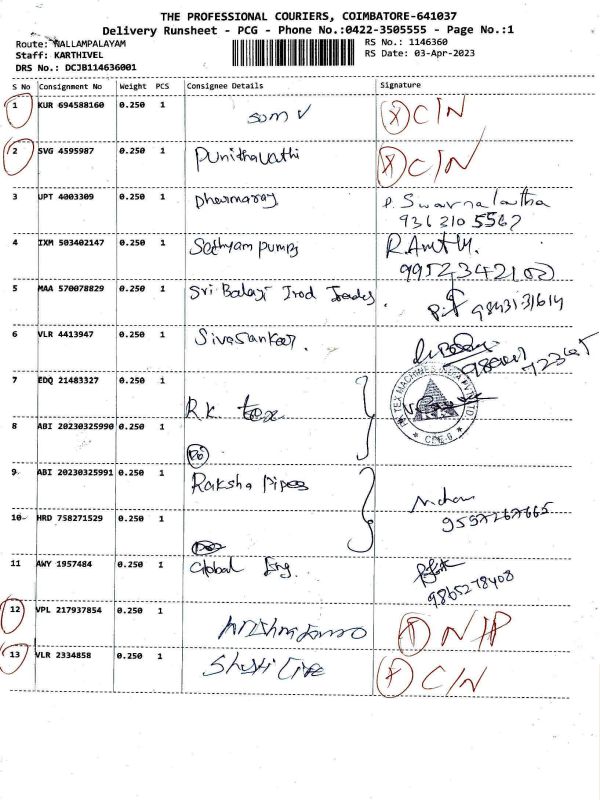 THE PROFESSIONAL COURIERS, COIMBATORE-641037
Delivery Runsheet - PCG - Phone No.:0422-3505555 - Page No.:1
Route: NALLAMPALAYAM
RS No.: 1146360
Staff: KARTHIVEL
RS Date: 03-Apr-2023
DRS No.: DCJB114636001
S No Consignment No Weight PCS Consignee Details Signature
1 KUR 694588160 0.250 1 Som ✓ X C/N
2 SVG 4595987 0.250 1 Punithavathi X C/N
3 UPT 4003309 0.250 1 Dharmaraj P. Swarnalatha
9363105567
4 IXM 503402147 0.250 1 Sathyam pumps R.Amth.
9952342100
5 MAA 570078829 0.250 1 Sri Balaji Irod Trades. 9843131614
6 VLR 4413947 0.250 1 Sivasankar.
7 EDQ 21483327 0.250 1
R.K tex
8 ABI 20230325990 0.250 1
9 ABI 20230325991 0.250 1 Raksha Pipes
10 HRD 758271529 0.250 1 9597267665
11 AWY 1957484 0.250 1 Global Eng.
9865278408
12 VPL 217937854 0.250 1 X N/P
13 VLR 2334858 0.250 1 Shakti X C/N